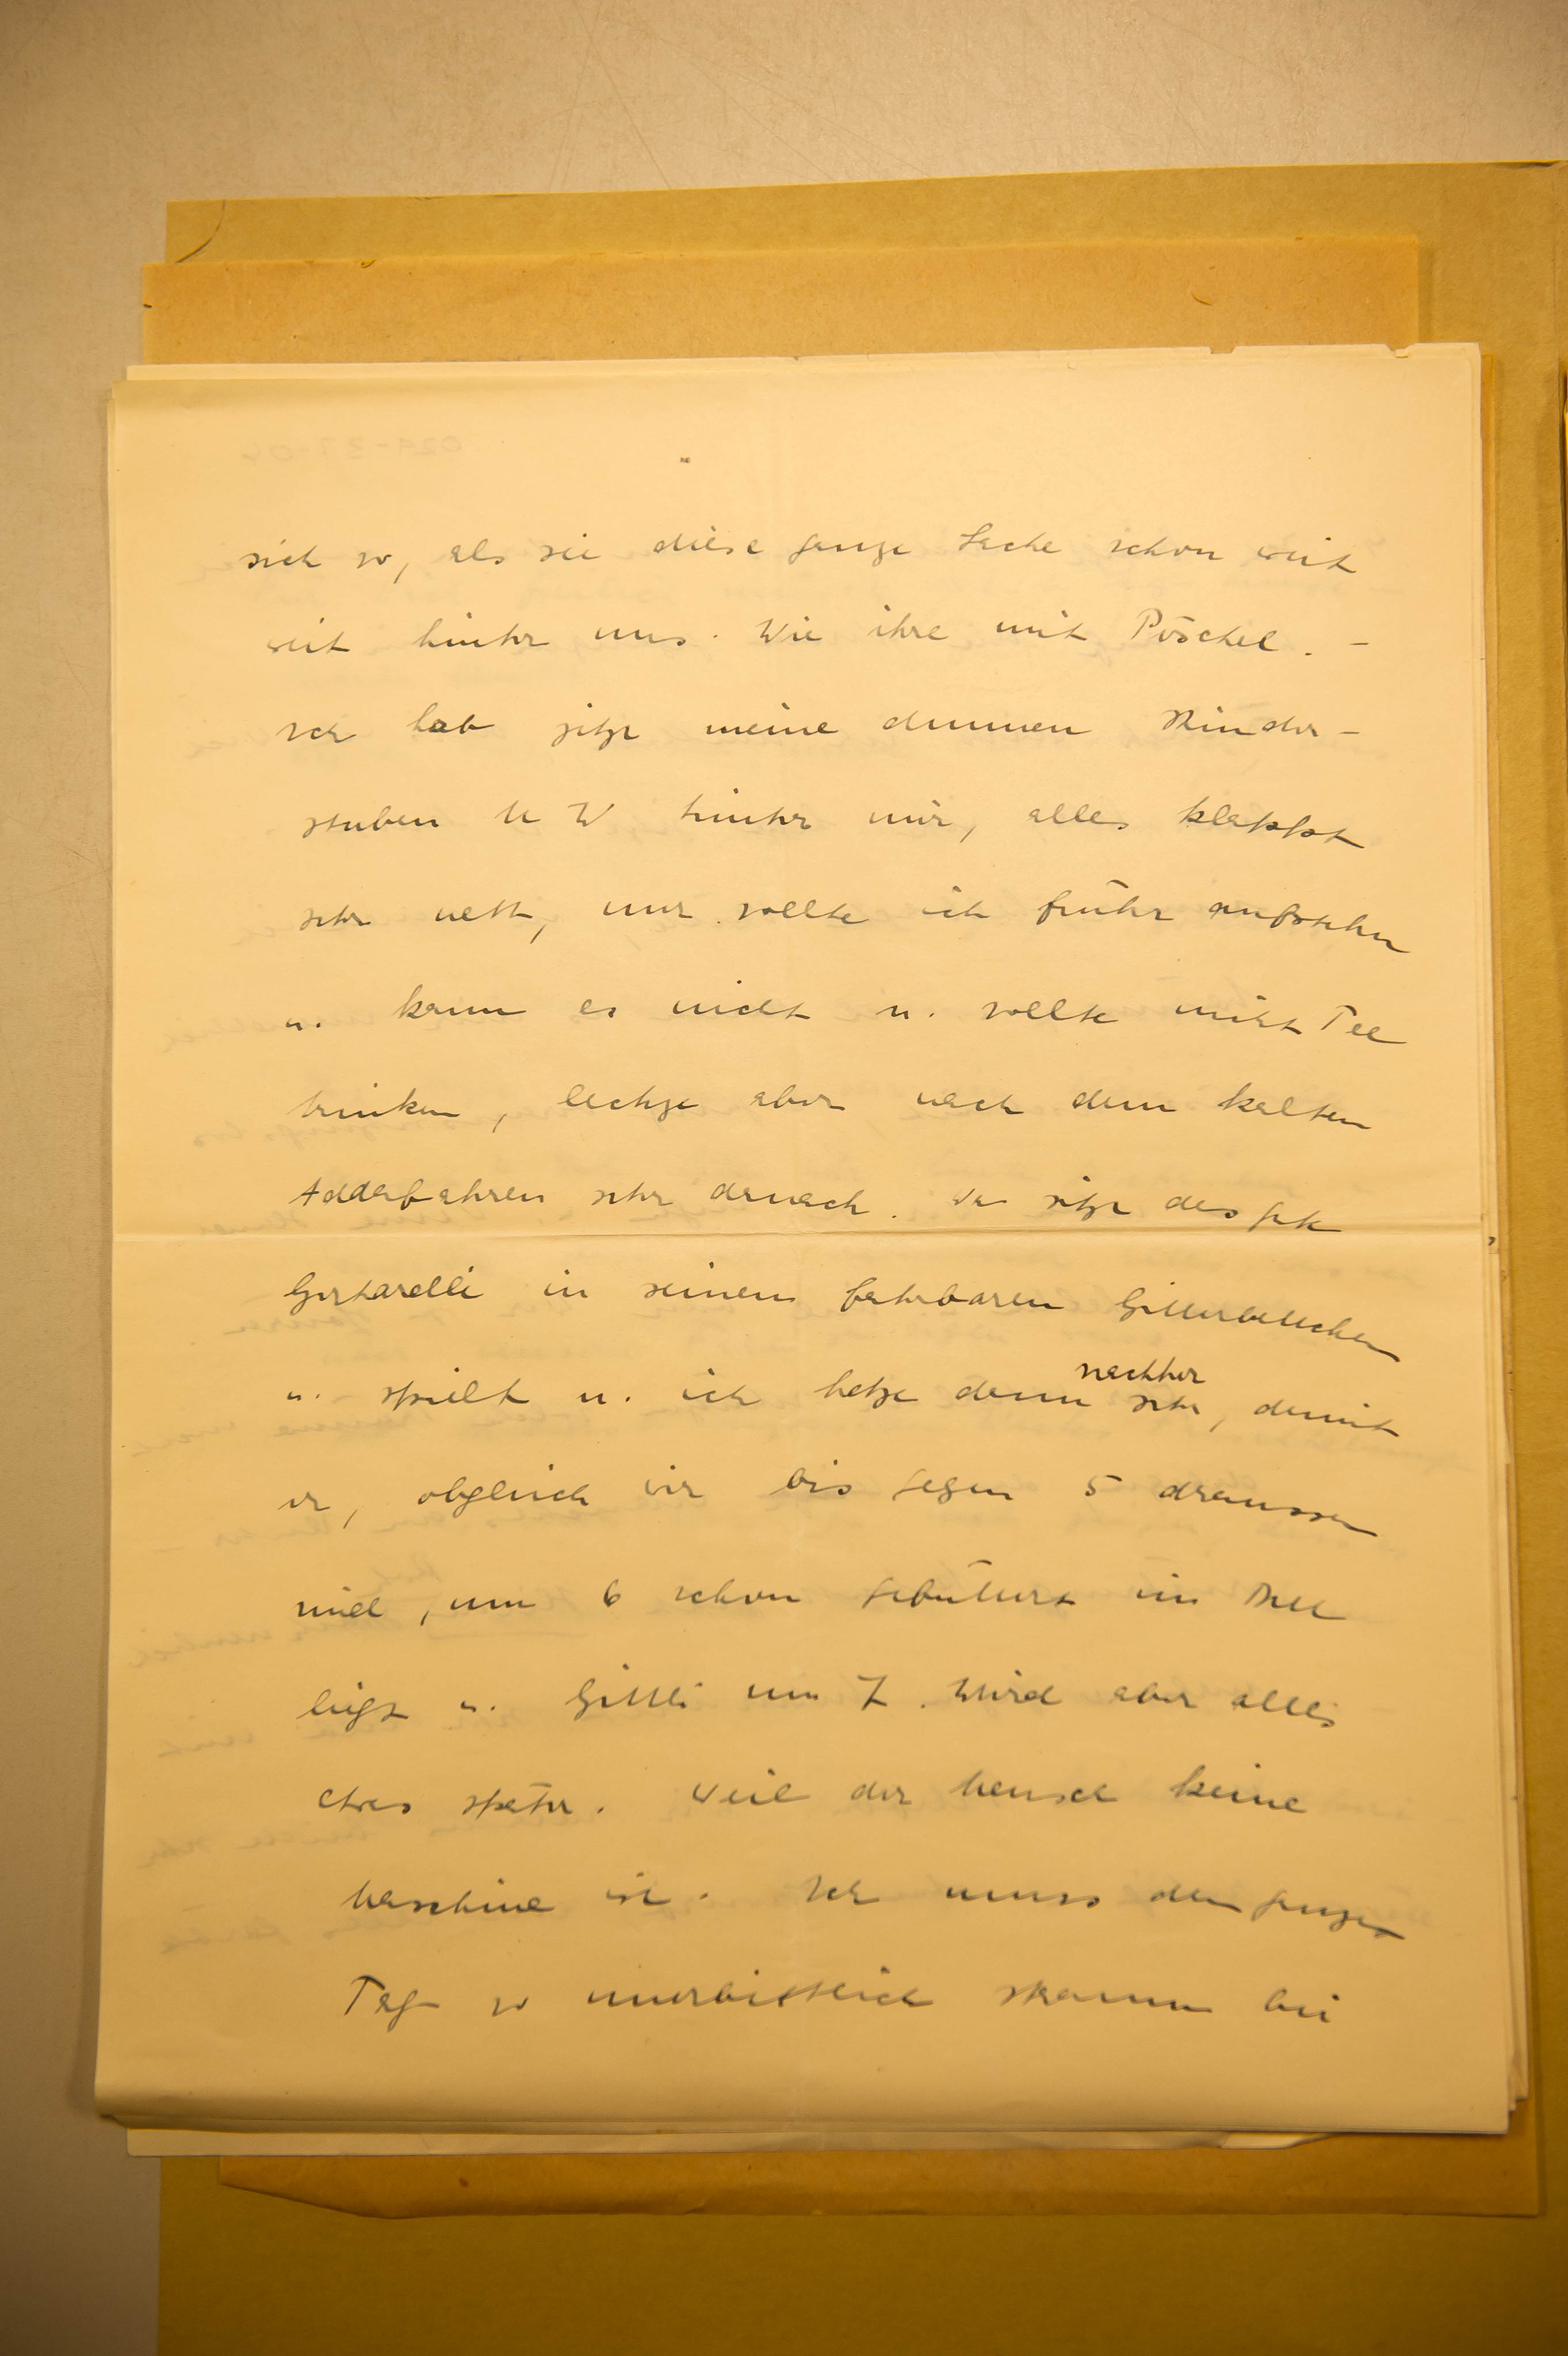 sich so, als sei diese ganze Sache schon weit
weit hinter uns. Wie ihre mit Pöschel. –
Ich hab jetzt meine dummen Kinder-
stuben hinter mir, alles klappt
sehr nett, nur sollte ich früher aufstehn
u. kann es nicht u. sollte nicht Tee
trinken, lechze aber nach dem kalten
sehr darnach. Da sitzt das gute
in seinem fahrbaren
u. spielt u. ich hetze dann nachher sehr, damit
er, obgleich wir bis gegen 5 draussen
sind, um 6 schon gefüttert im Bett
liegt u. Gitti um 7. Wird aber alles
etwas später. Weil der Mensch keine
Maschine ist. Ich muss den ganzen
Tag so unerbittlich stramm bei